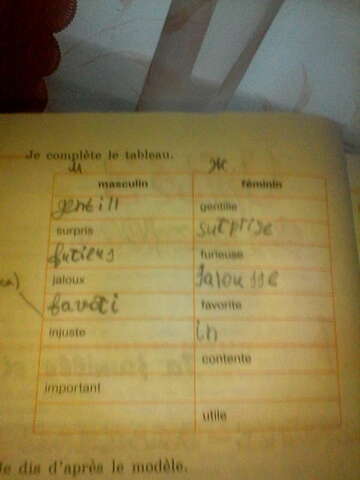 Je complète le tableau.
м ж
masculin féminin
gentill gentille
surpris surprise
furieus furieuse
jaloux Jalousse
favoti favorite
injuste in
contente
important
utile
Je dis d'après le modèle.